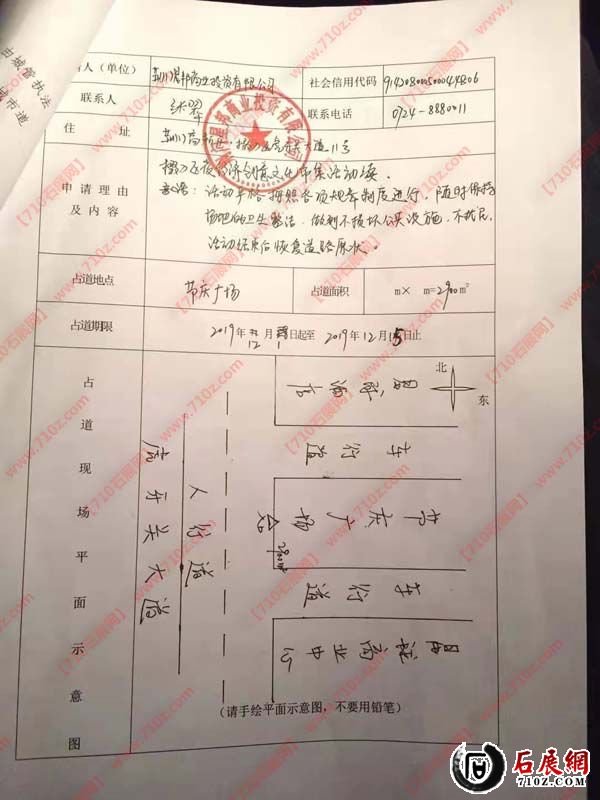 由城管执法
城市道
人（单位）
荆门昆邦商业投资有限公司
社会信用代码
联系人
联系电话
0724-8880011
住 址
申请理由
及内容
承诺：活动严格按照各项规章制度进行，随时保持
场地的卫生整洁，做到不损坏公共设施，不扰民，
活动结束后恢复道路原状。
占道地点
节庆广场
占道面积
m× m=2900m²
占道期限
2019年12月1日起至2019年12月15日止
占道现场平面示意图
北
东
酒店
车行道
节庆广场
2900m²
车行道
商业中心
人行道
虎牙关大道
（请手绘平面示意图，不要用铅笔）
【710石展网】www.710z.com
石展網
710z.Com